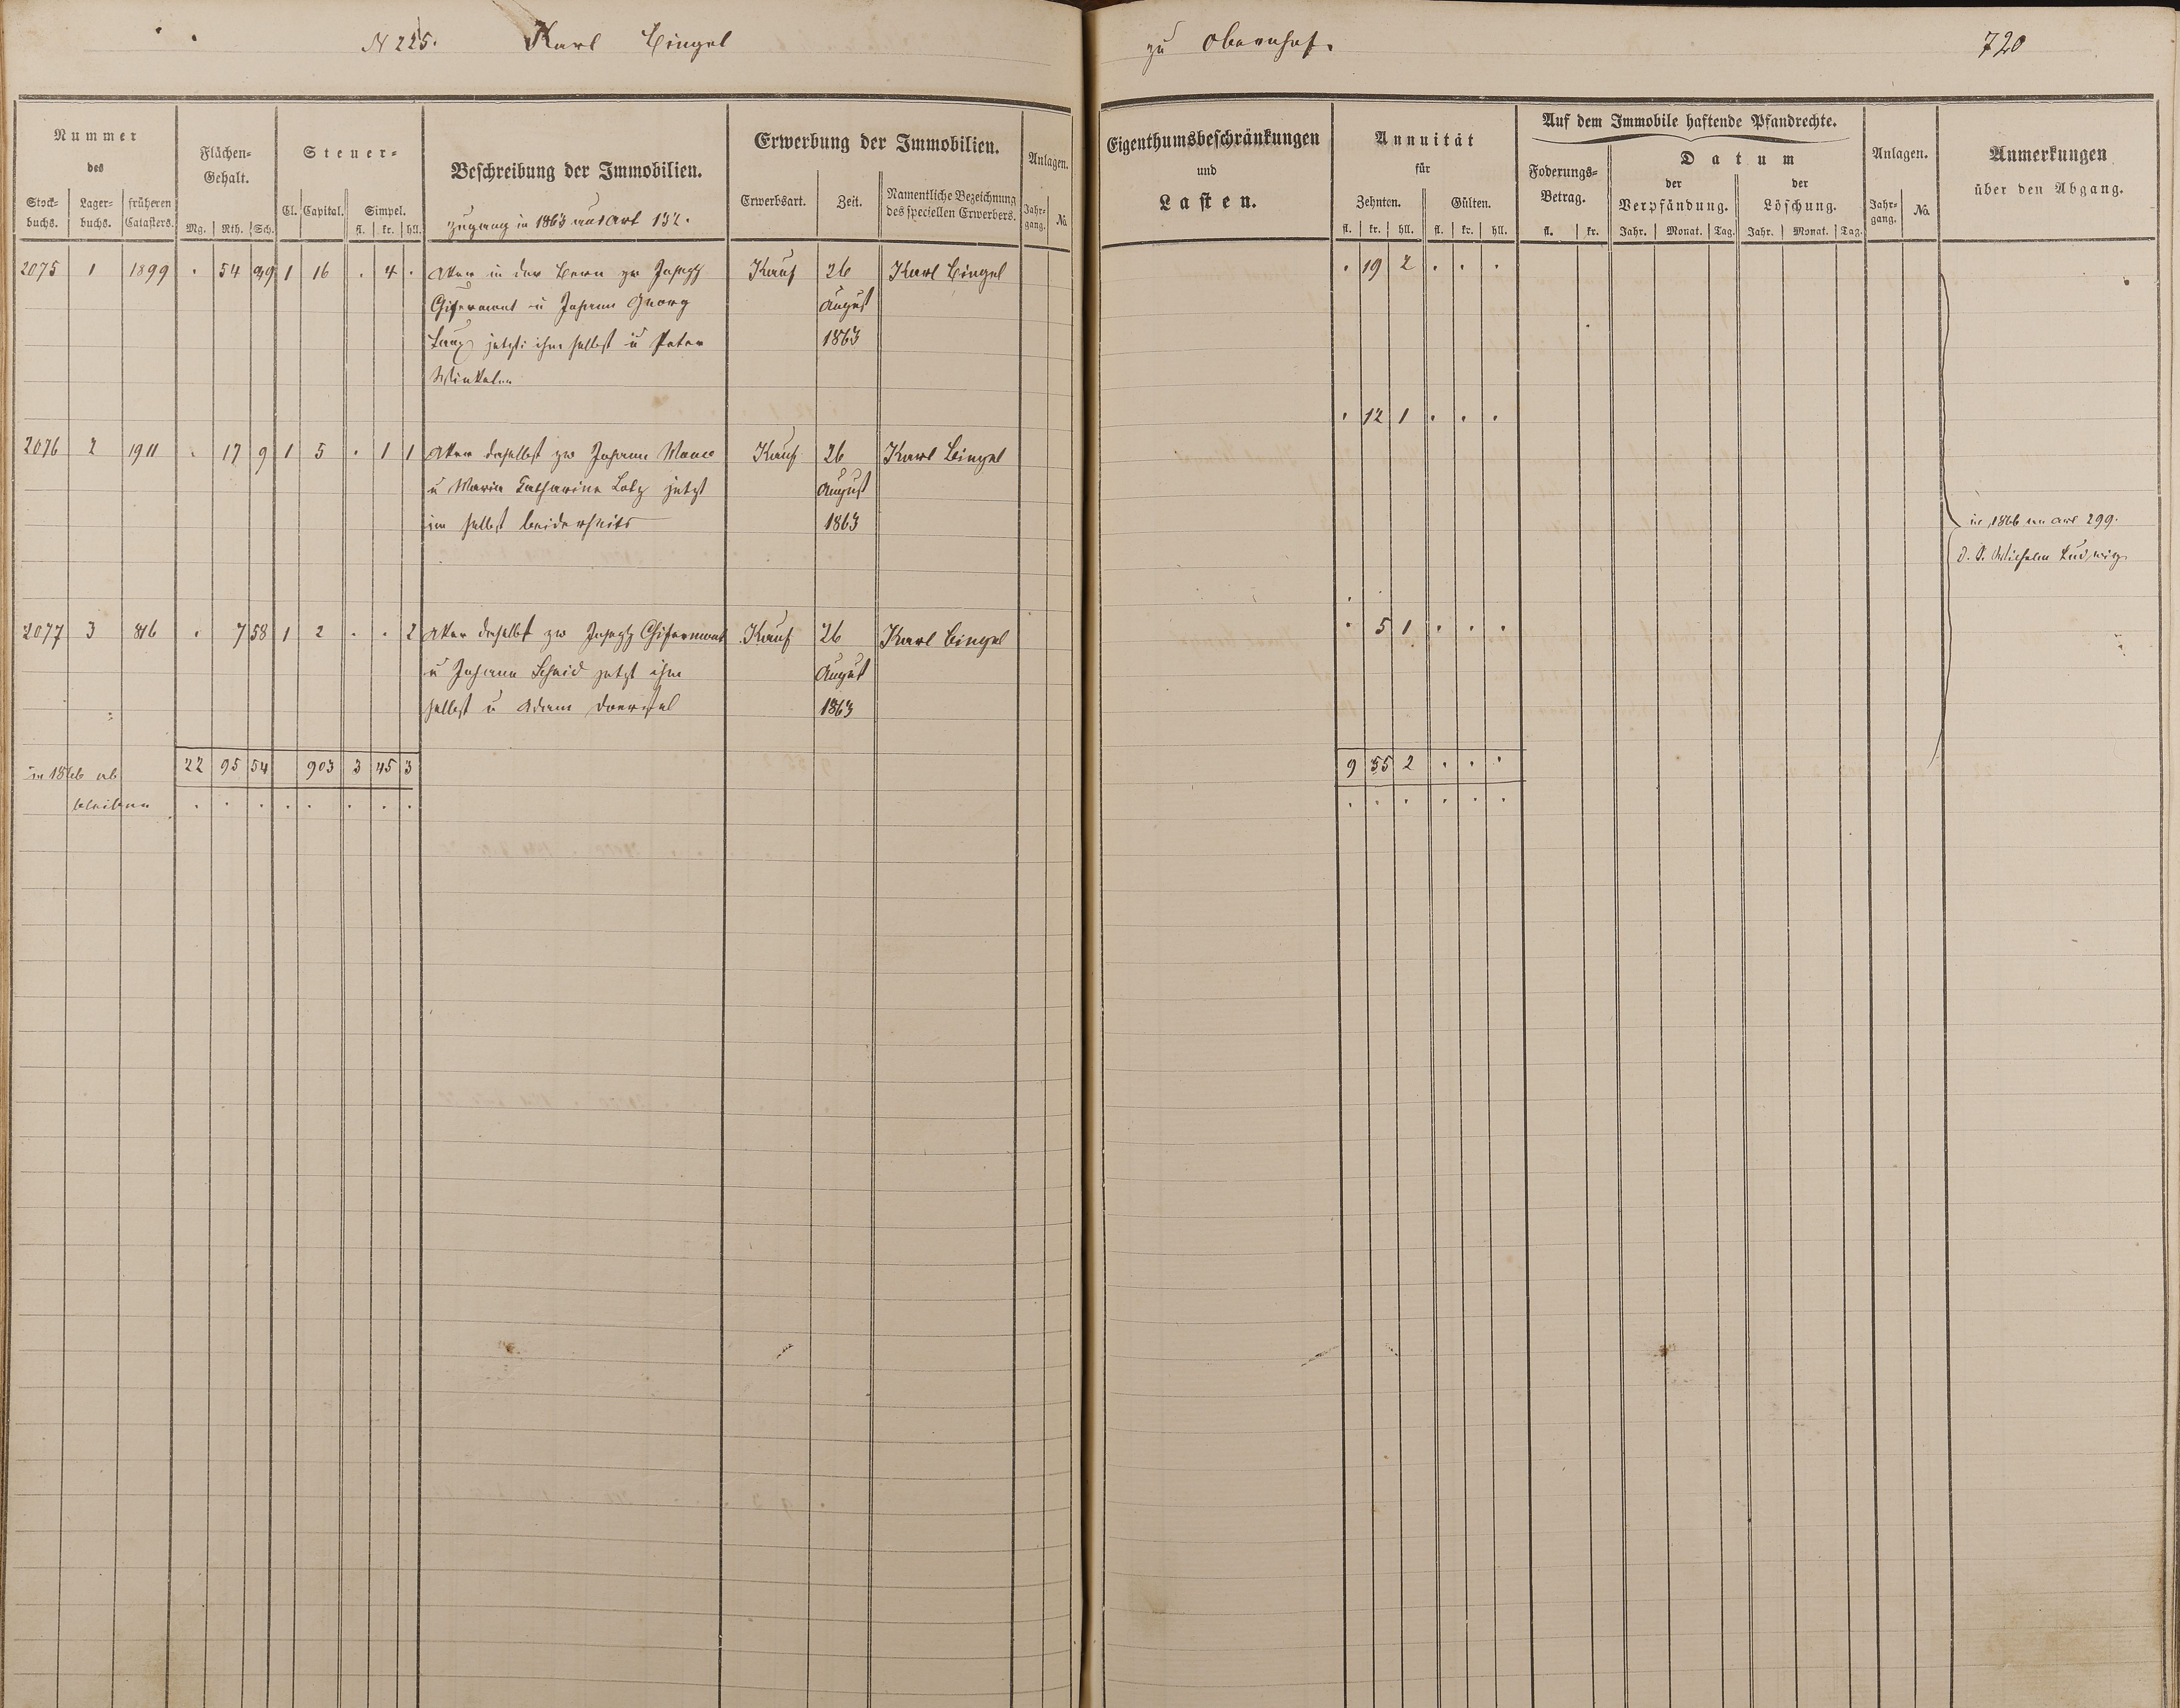 N 225. Karl Bingel zu Obernhof. 720
Nummer
des
Stock-
buchs.
Lager-
buchs.
früheren
Catasters.
Flächen-
Gehalt.
Mg. Rth. Sch.
Steuer-
Cl. Capital. Simpel.
fl. kr. hll.
Beschreibung der Immobilien.
Zugang in 1863 aus Art 132.
Erwerbung der Immobilien.
Erwerbsart. Zeit.
Namentliche Bezeichnung
des speciellen Erwerbers.
Anlagen.
Jahr-
gang.
No.
Eigenthumsbeschränkungen
und
Lasten.
Annuität
für
Zehnten. Gülten.
fl. kr. hll. fl. kr. hll.
Auf dem Immobile haftende Pfandrechte.
Foderungs-
Betrag.
fl. kr.
Datum
der
Verpfändung.
der
Löschung.
Jahr. Monat. Tag. Jahr. Monat. Tag.
Anlagen.
Jahr-
gang.
No.
Anmerkungen
über den Abgang.
2075 1 1899 . 54 99 1 16 . 4 . Aker in der zw Joseph Kauf 26 Karl Bingel . 19 2 . . .
u Johann Georg August
jetzt: ihm selbst u Peter 1863
. 12 1 . . .
2076 2 1911 . 17 9 1 5 . 1 1 Aker daselbst zw Johann Kauf 26 Karl Bingel
u Maria Catharina Lotz jetzt August
im selbst beiderseits 1863
in 1866 an Art 299.
d. d. Wilhelm Ludwig
2077 3 816 . 7 58 1 2 . . 2 Aker daselbst zw Joseph Kauf 26 Karl Bingel . 5 1 . . .
u Johann Scheid jetzt ihm August
selbst u Adam 1863
in 1866 ab 22 95 54 903 3 45 3 9 55 2 . . .
bleiben . . . . . . . . . . . . . .